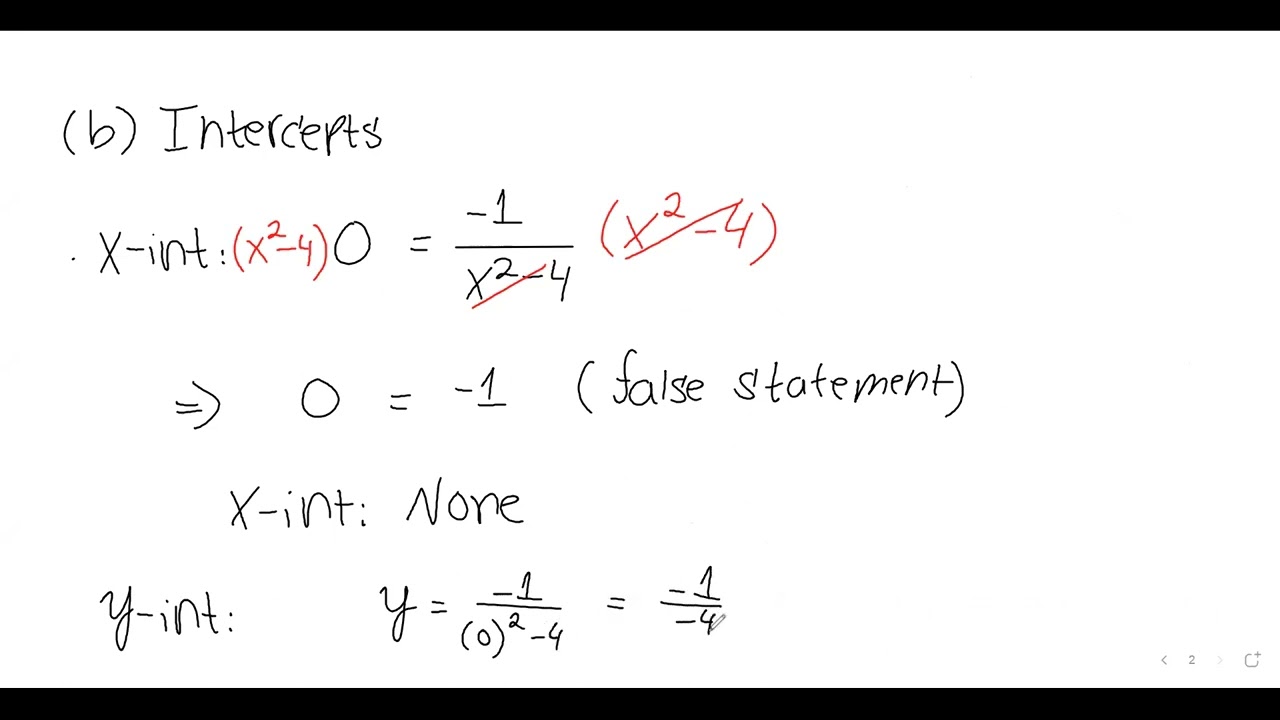 (b) Intercepts
x-int: (x²-4) 0 = -1/(x²-4) (x²-4)
⇒ 0 = -1 (false statement)
x-int: None
y-int: y = -1/((0)²-4) = -1/-4
< 2 >